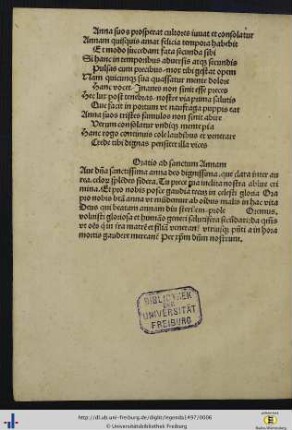 Anna suos prosperat cultores iuuat et consolatur
Annam quisquis amat felicia tempora habebit
Et modo succedunt fata secunda sibi
Si hanc in temporibus aduersis atqz secundis
Pulsas cum precibus mox tibi gestat opem
Nam quicunqz sua quassatur mente dolore
Hanc vocet Inanes non sinit esse preces
Hec lux post tenebras noster via prima salutis
Que facit in portum vt naufraga puppis eat
Anna suos tristes famulos non sinit abire
Verum consolatur vndiqz mente pia
Hanc rogo continuis cole laudibus et venerare
Crede tibi dignas persoluet illa vices
Oratio ad sanctam Annam
Aue dña sanctissima anna deo dignissima, que clara inter au
rea celox splēdes sidera, Tu prece pia inclita nostra ablue cri
mina, Et pro nobis posce gaudia
pro nobis btā anna vt mūdemur ab oibus malis in hac vita
Deus qui beatam annam diu sterilem prole Oremus,
voluisti gloriosa et humāo generi salutifera fecūdare: da qs
vt oēs qui
mortis gaudere mereant Per xpm dñm nostrum,
BIBLIOTHEK
DER
UNIVERSITÄT
FREIBURG
http://dl.ub.uni-freiburg.de/diglit/legenda1497/0006
© Universitätsbibliothek Freiburg
Baden-Württemberg